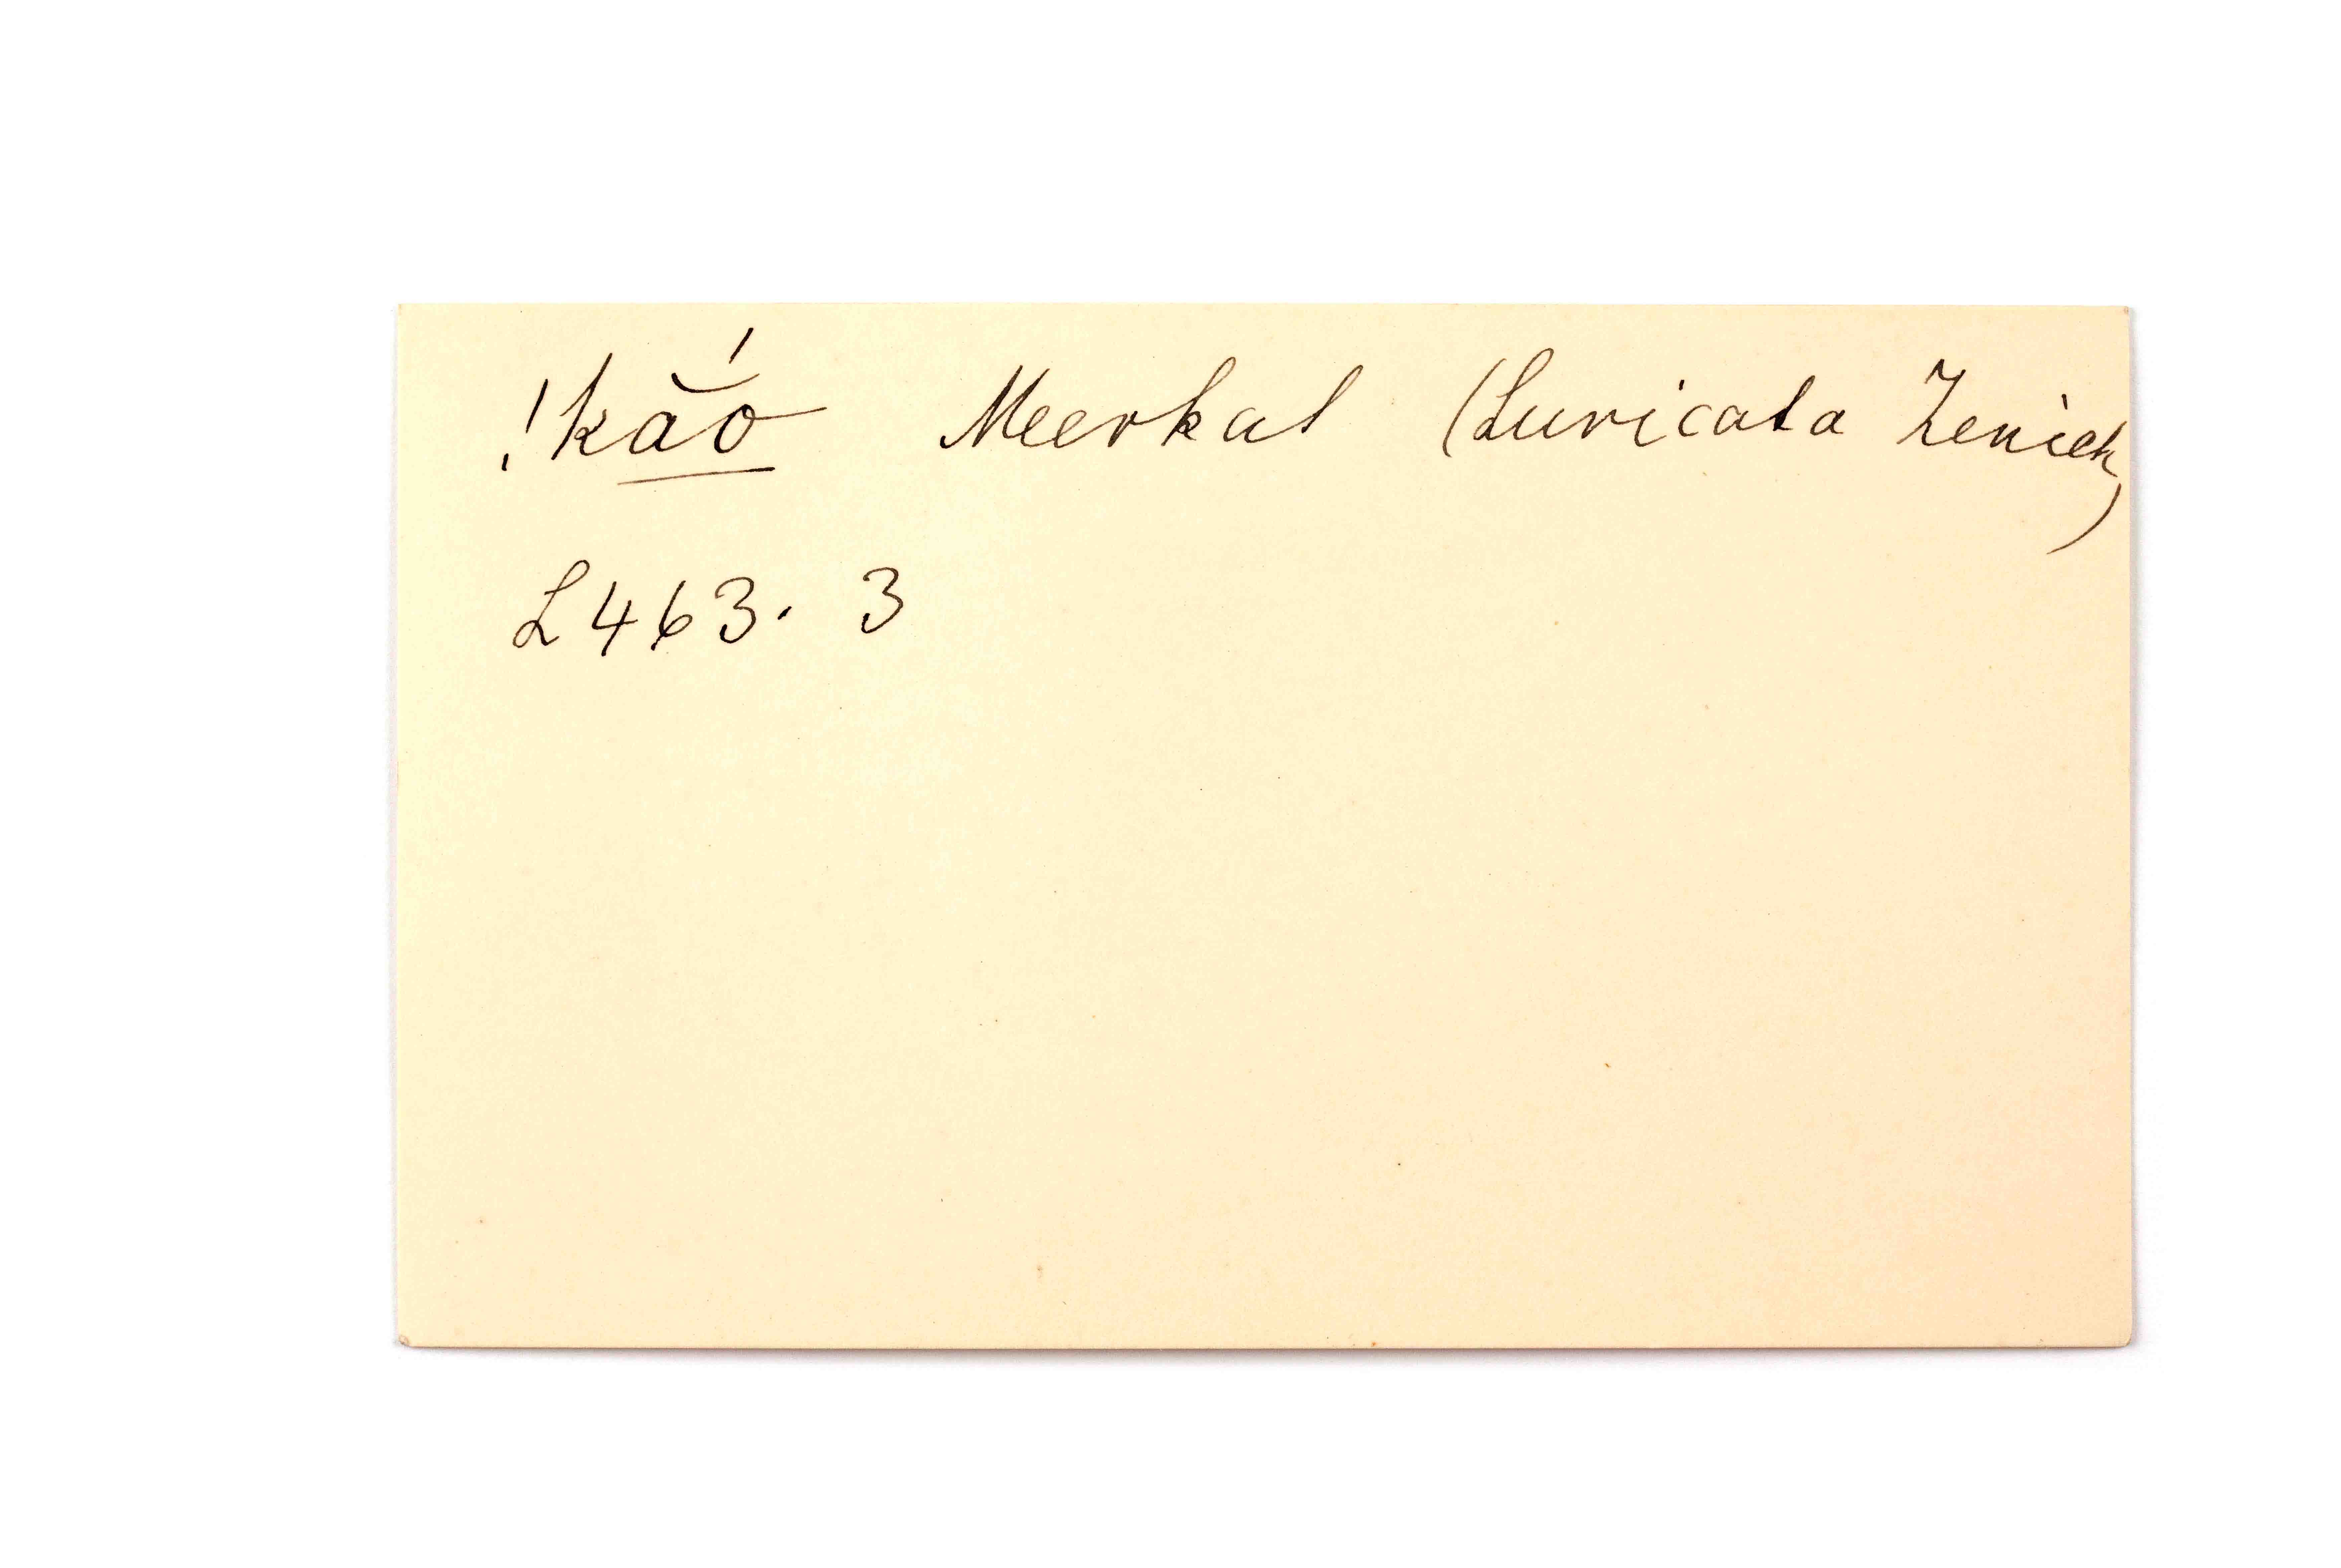 !kắo Meerkat (Suricata Zenick)
L 463. 3